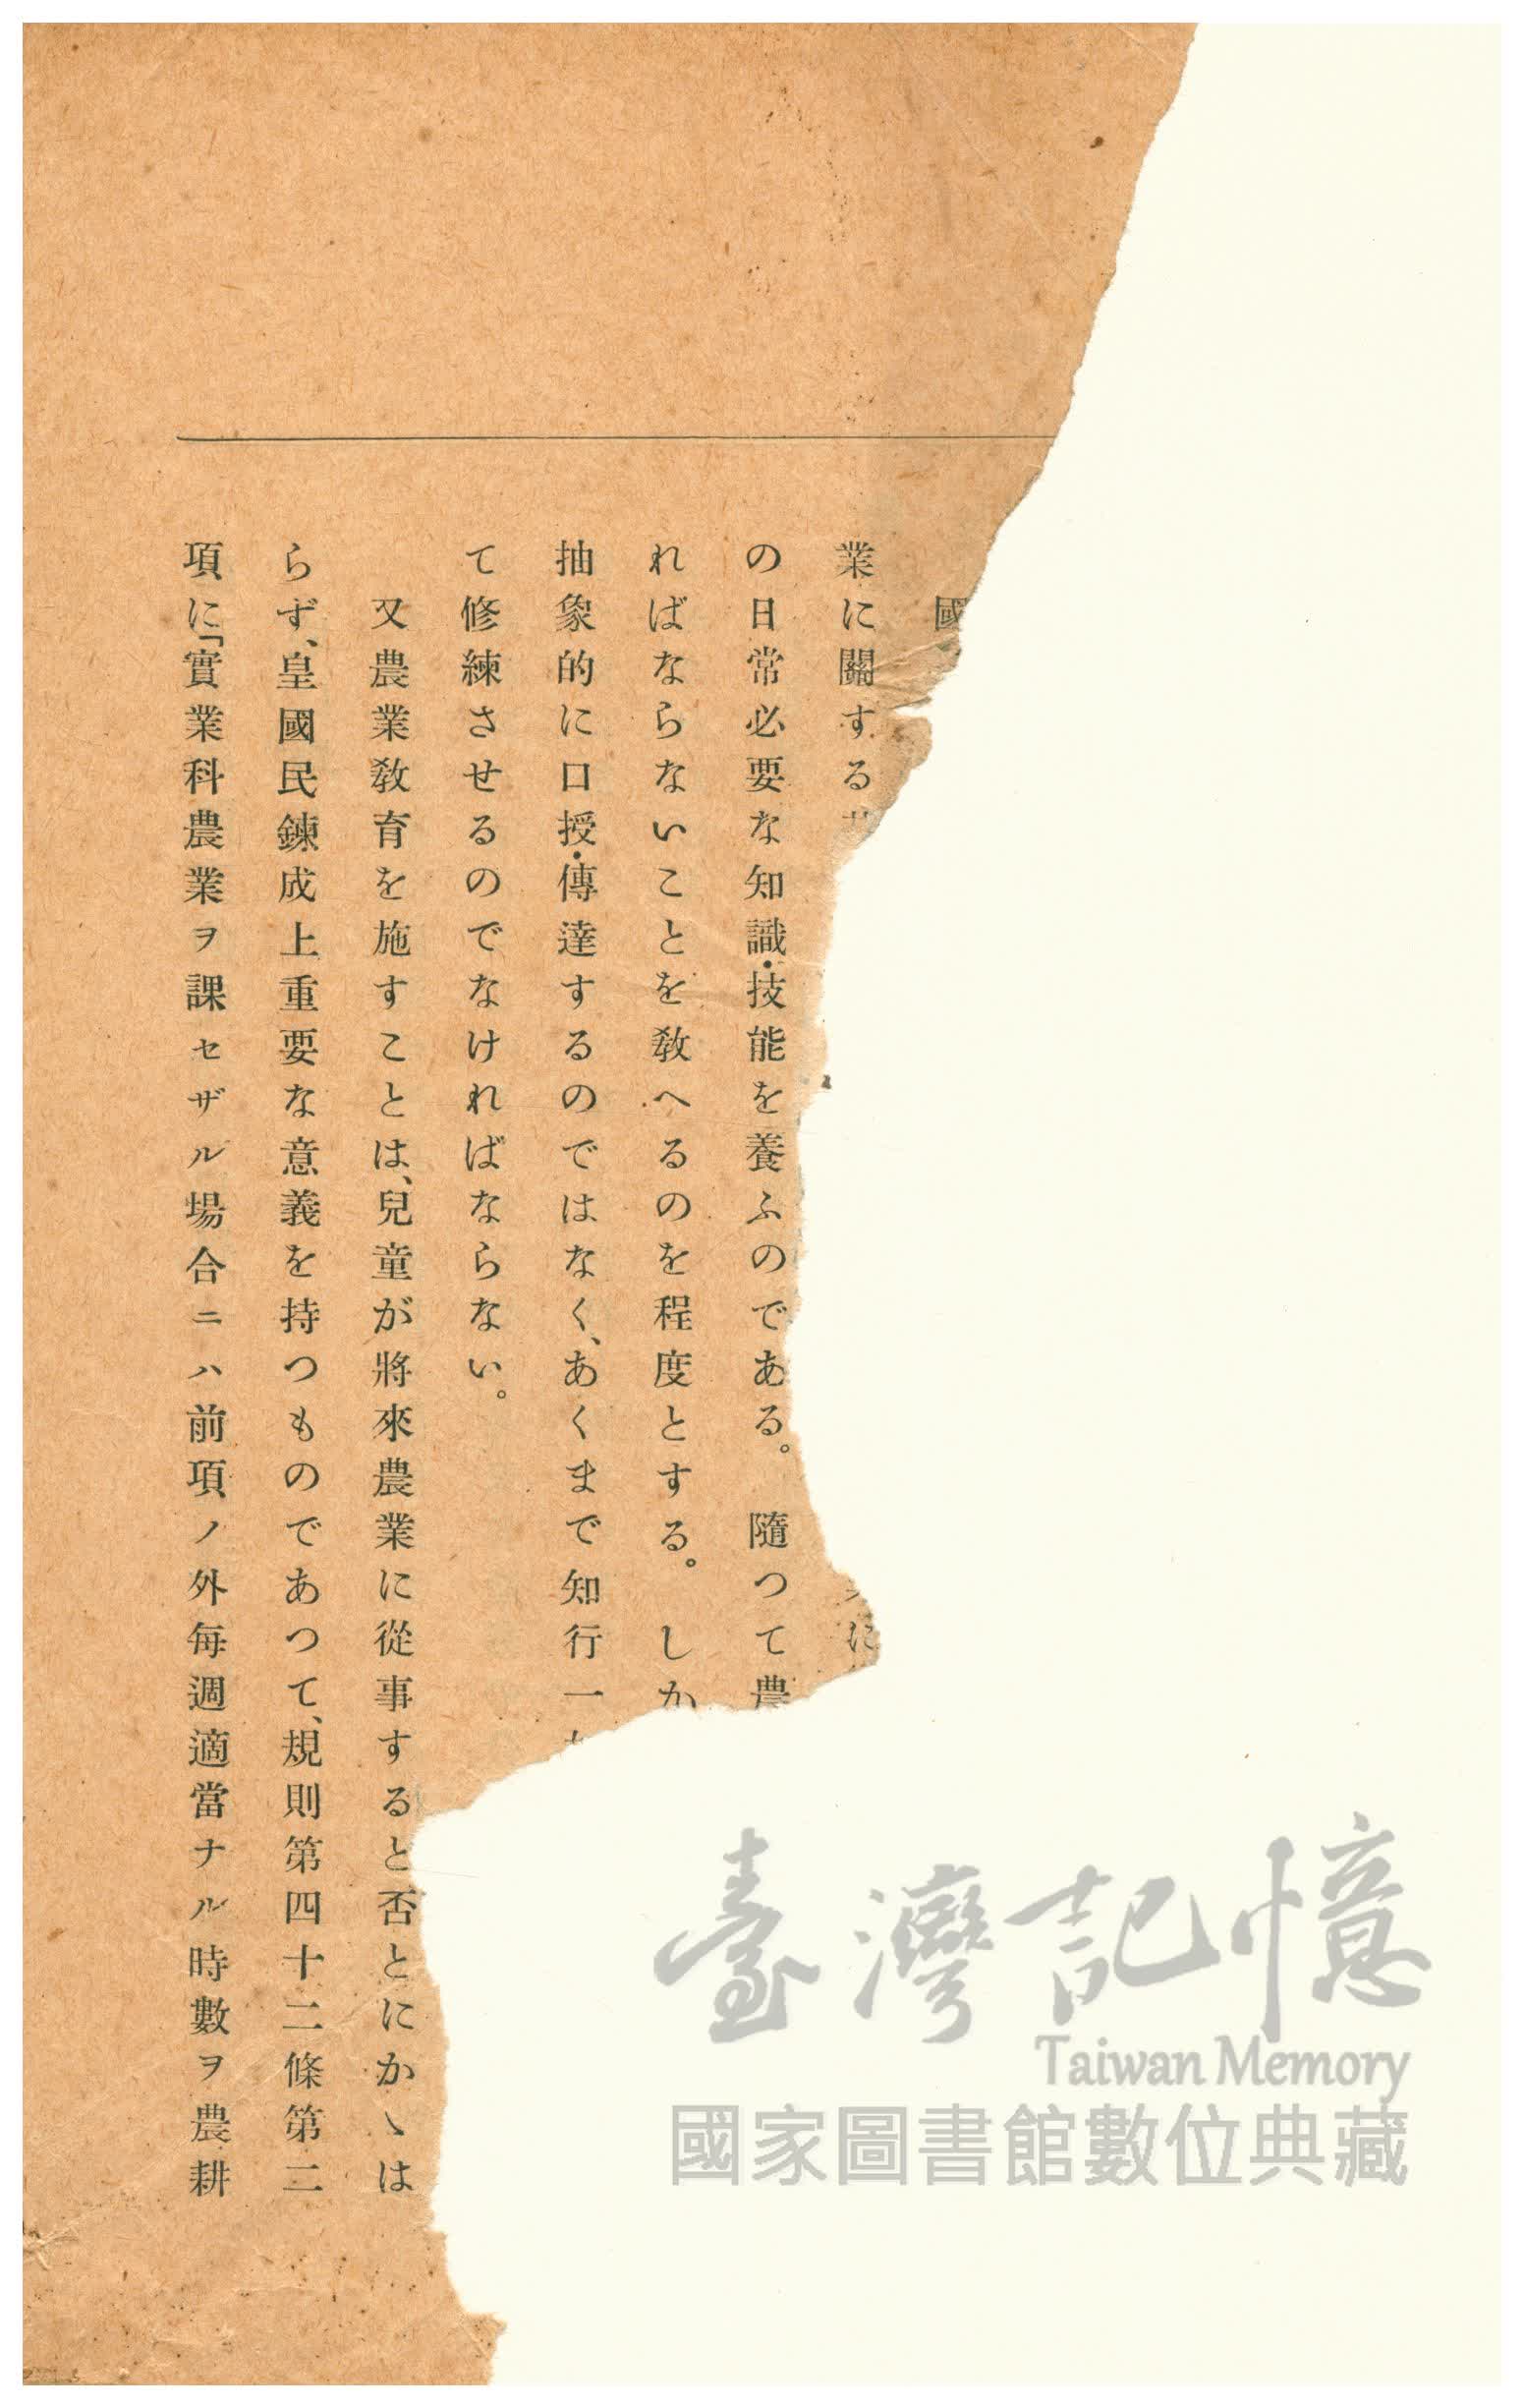 國
業に關する
の日常必要な知識・技能を養ふのである。　隨つて農
ればならないことを敎へるのを程度とする。　しか
抽象的に口授・傳達するのではなく、あくまで知行一
て修練させるのでなければならない。
又農業敎育を施すことは、兒童が將來農業に從事すると否とにかゝは
らず、皇國民鍊成上重要な意義を持つものであつて、規則第四十二條第二
項に「實業科農業ヲ課セザル場合ニハ前項ノ外每週適當ナル時數ヲ農耕
臺灣記憶
Taiwan Memory
國家圖書館數位典藏